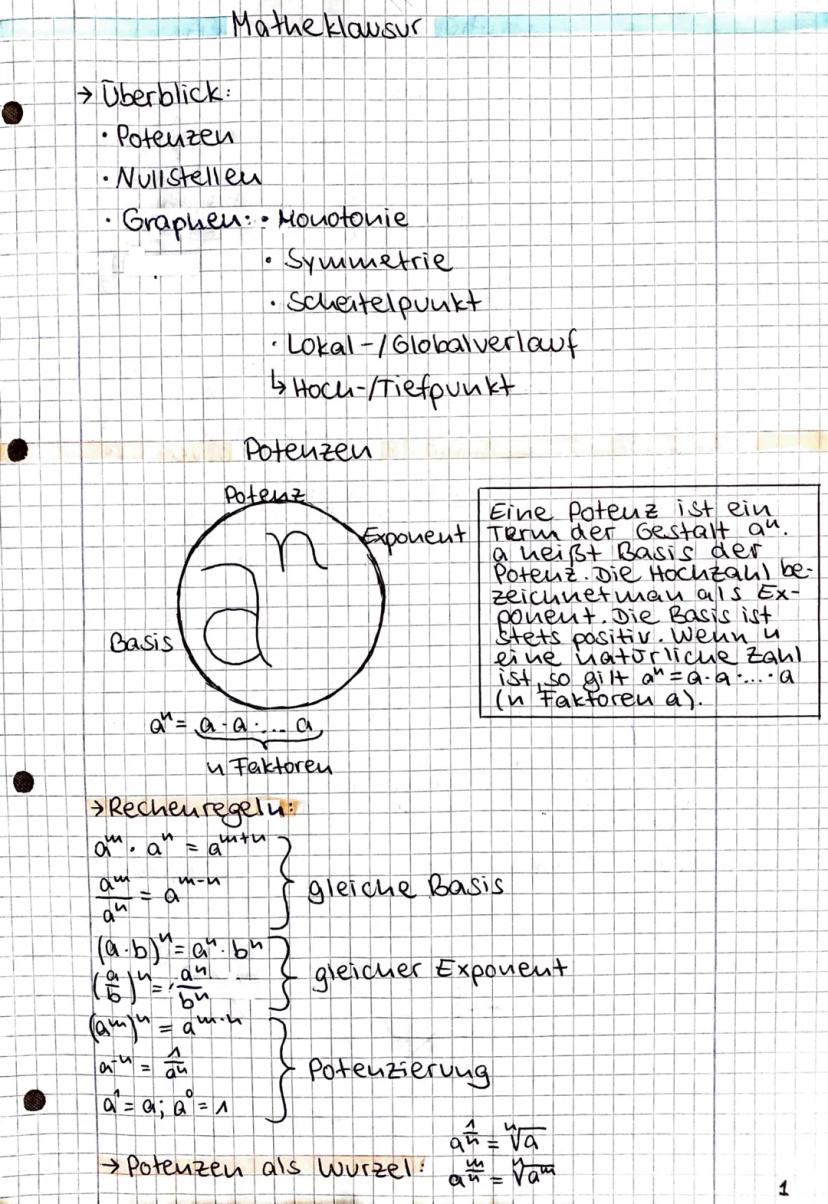 Matheklausur
→ Überblick:
• Potenzen
• Nullstellen
• Graphen: • Monotonie
• Symmetrie
• Scheitelpunkt
• Lokal-/Globalverlauf
↳ Hoch-/Tiefpunkt
Potenzen
Potenz
Exponent
aⁿ
Basis
aⁿ = a · a · ... a
n Faktoren
Eine Potenz ist ein
Term der Gestalt aⁿ.
a heißt Basis der
Potenz. Die Hochzahl be-
zeichnet man als Ex-
ponent. Die Basis ist
stets positiv. Wenn n
eine natürliche Zahl
ist, so gilt aⁿ = a·a·...·a
(n Faktoren a).
→ Rechenregeln:
aᵐ · aⁿ = aᵐ⁺ⁿ
aᵐ/aⁿ = aᵐ⁻ⁿ
gleiche Basis
(a·b)ⁿ = aⁿ · bⁿ
(a/b)ⁿ = aⁿ/bⁿ
gleicher Exponent
(aᵐ)ⁿ = a^(m·n)
a⁻ⁿ = 1/aⁿ
a¹ = a; a⁰ = 1
Potenzierung
→ Potenzen als Wurzel:
a^(1/n) = ⁿ√a
a^(m/n) = ⁿ√aᵐ
1